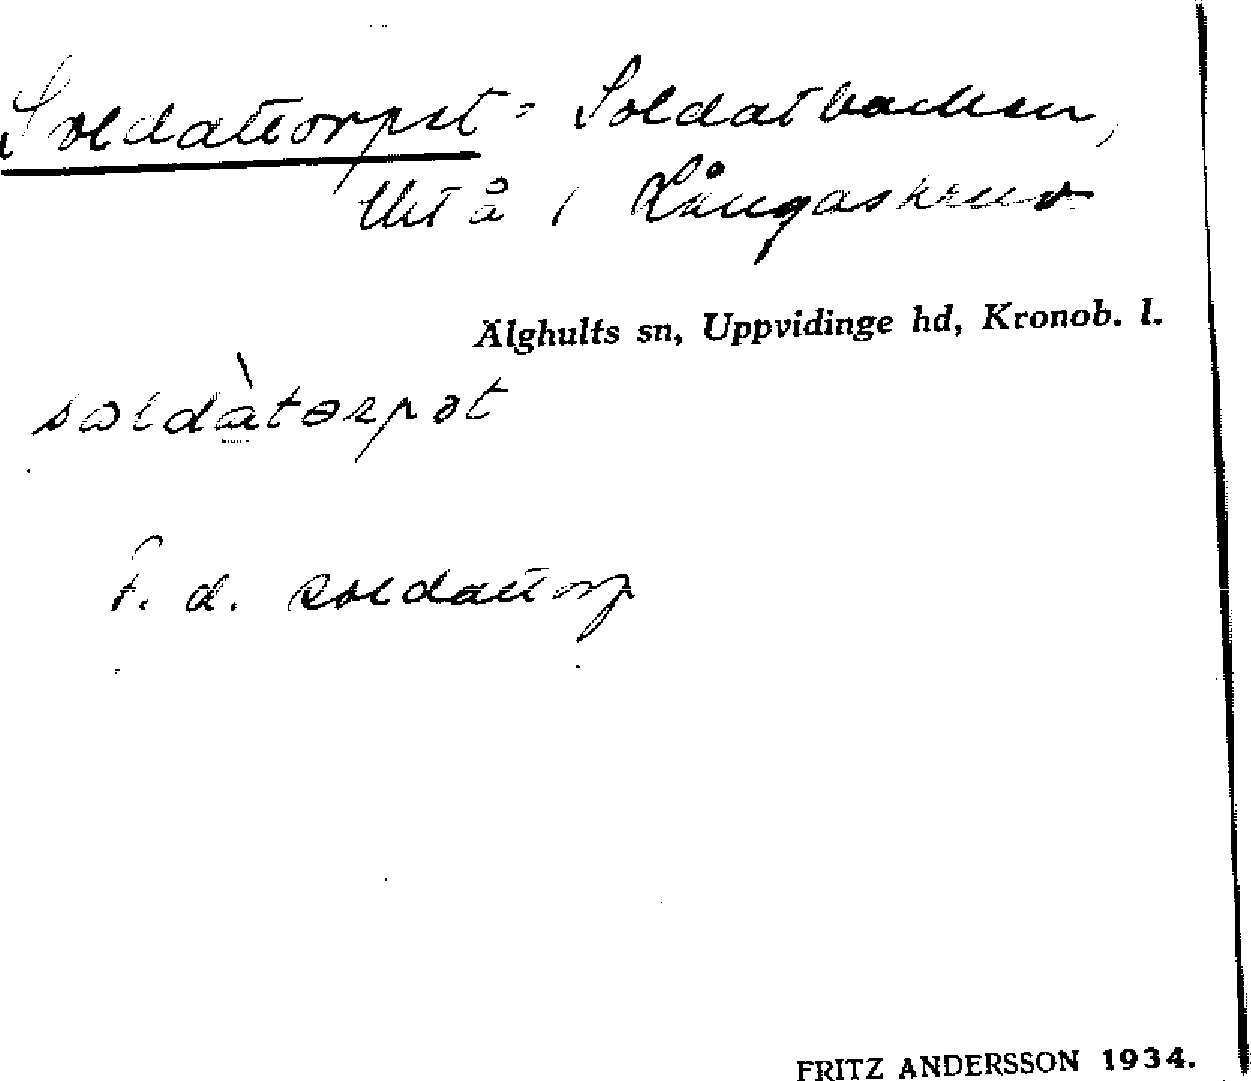 Soldattorpet = Soldatbacken,
lht å i Långaskruv
Älghults sn, Uppvidinge hd, Kronob. l.
soldàtorpət
F. d. soldattorp
FRITZ ANDERSSON 1934.